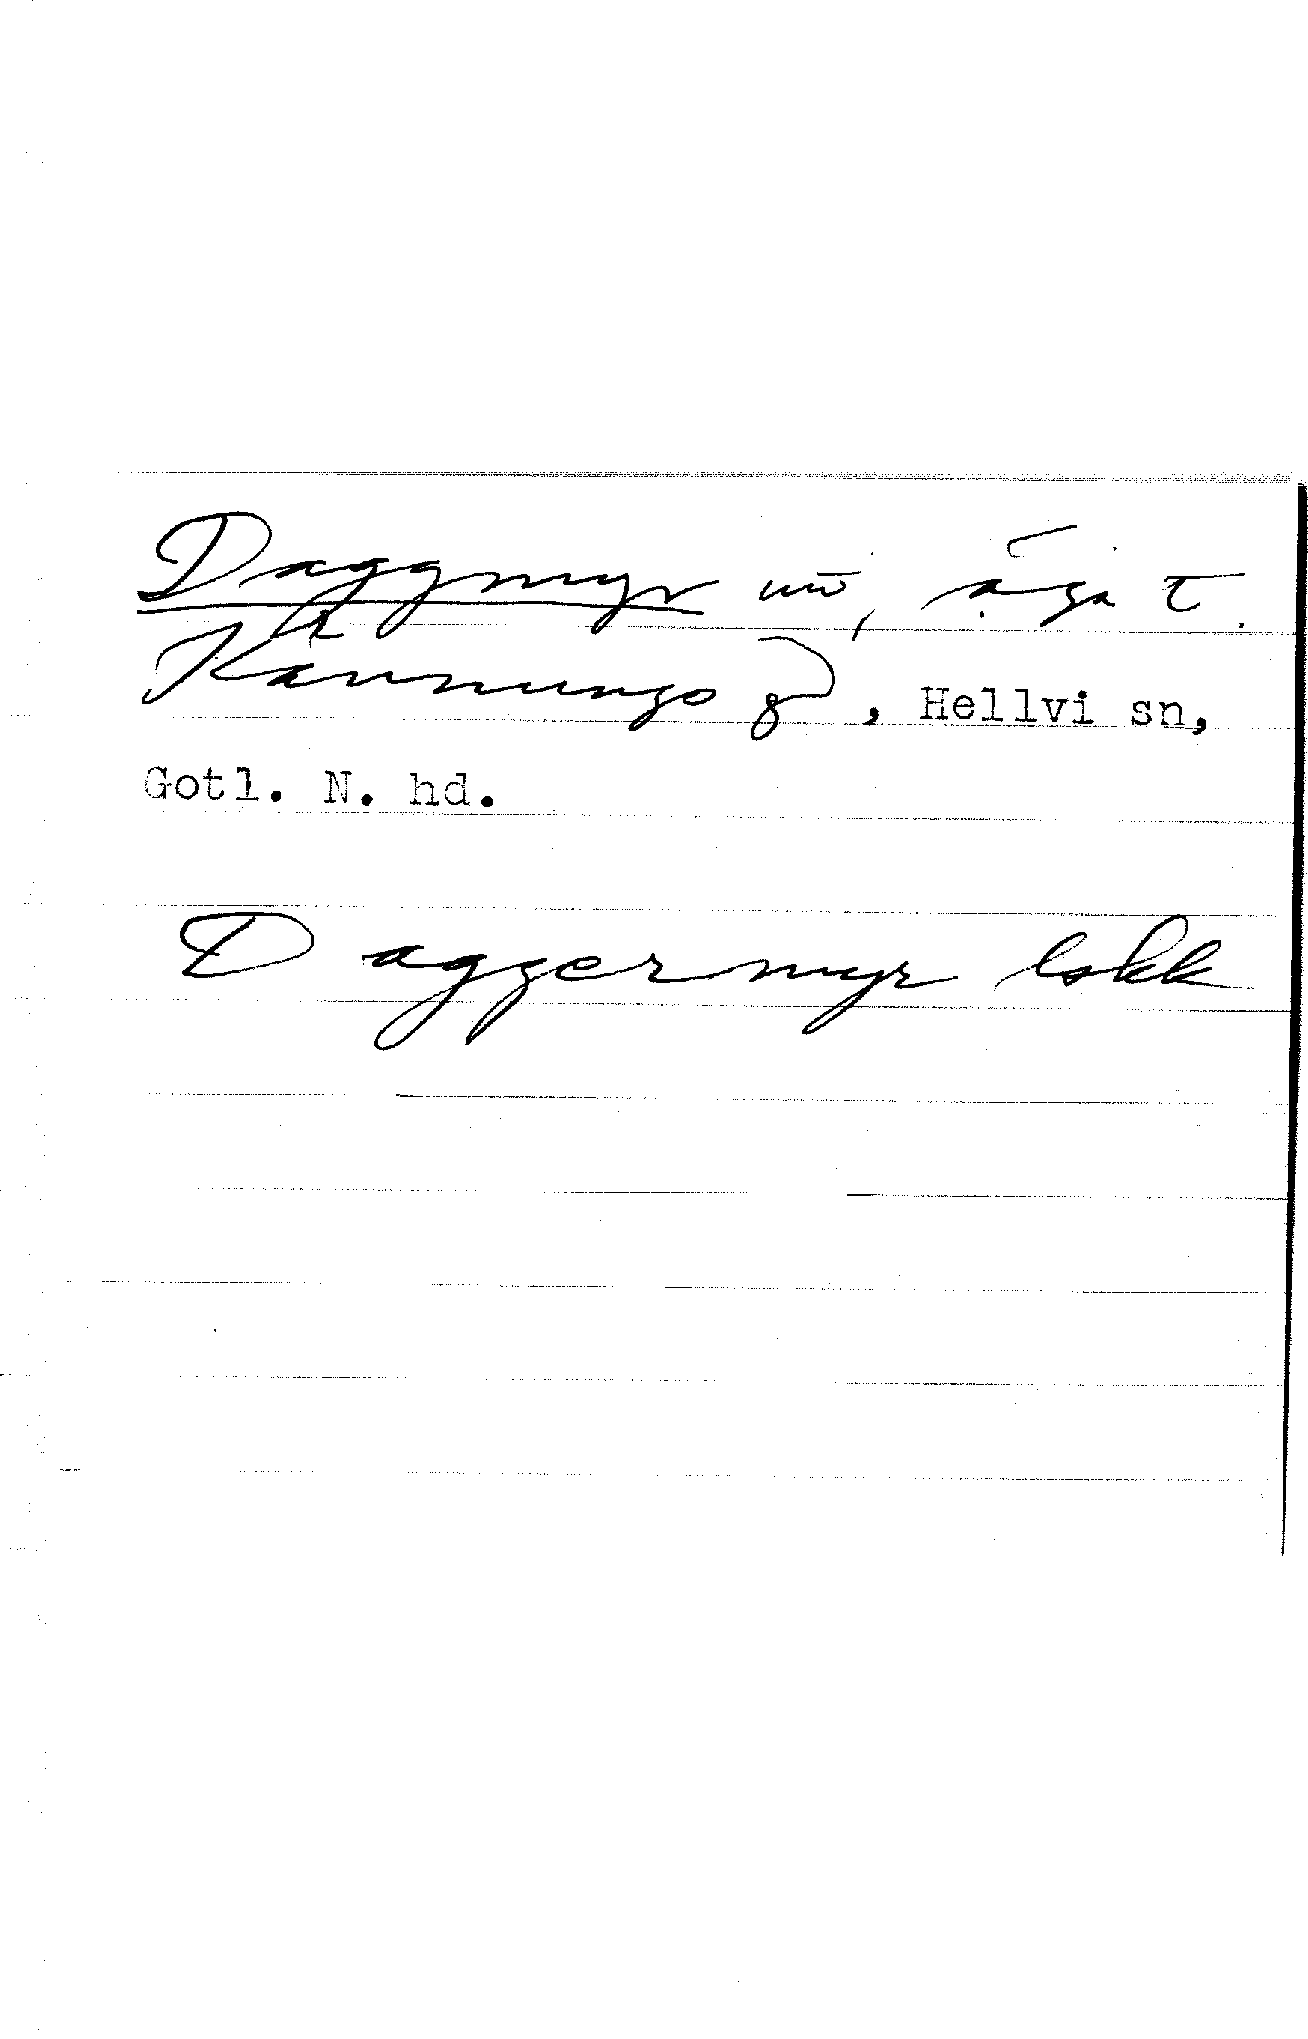 Daggmyr
Kännungs gd, Hellvi sn,
Gotl. N. hd.
Daggermyr lokk